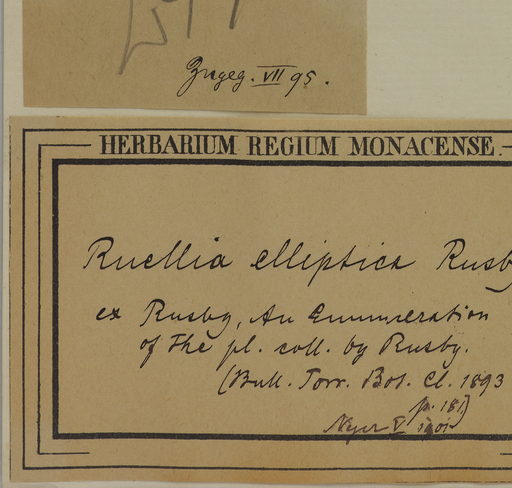 Zugeg. VII 95.
HERBARIUM REGIUM MONACENSE.
Ruellia elliptica Rusby
ex Rusby, An Enumeration
of the pl. coll. by Rusby.
(Bull. Torr. Bot. Cl. 1893
p. 181)
V 1901